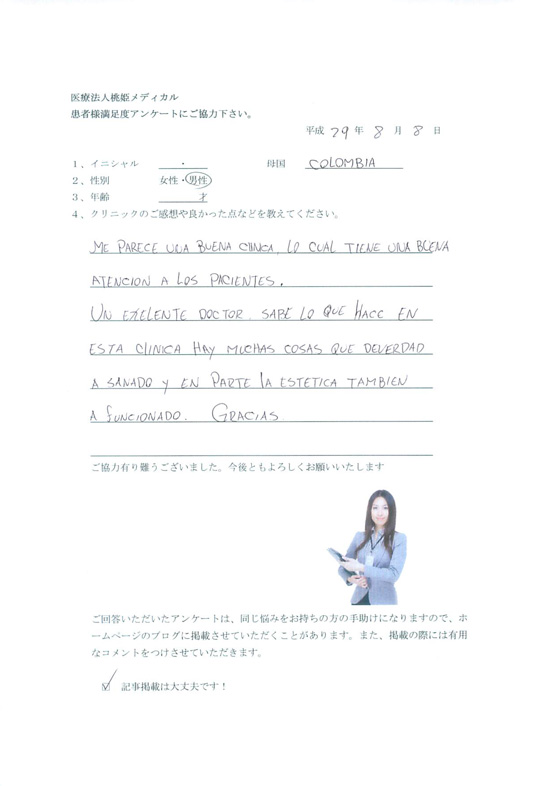 医療法人桃姫メディカル
患者様満足度アンケートにご協力下さい。
平成 29 年 8 月 8 日
1、イニシャル ・ 母国 COLOMBIA
2、性別 女性・男性
3、年齢 才
4、クリニックのご感想や良かった点などを教えてください。
ME PARECE UNA BUENA CLINCA, LO CUAL TIENE UNA BUENA
ATENCION A LOS PACIENTES.
UN EXELENTE DOCTOR. SABE LO QUE HACE EN
ESTA CLINICA HAY MUCHAS COSAS QUE DEVERDAD
A SANADO Y EN PARTE LA ESTETICA TAMBIEN
A FUNCIONADO. GRACIAS
ご協力有り難うございました。今後ともよろしくお願いいたします
ご回答いただいたアンケートは、同じ悩みをお持ちの方の手助けになりますので、ホ
ームページのブログに掲載させていただくことがあります。また、掲載の際には有用
なコメントをつけさせていただきます。
☑ 記事掲載は大丈夫です！